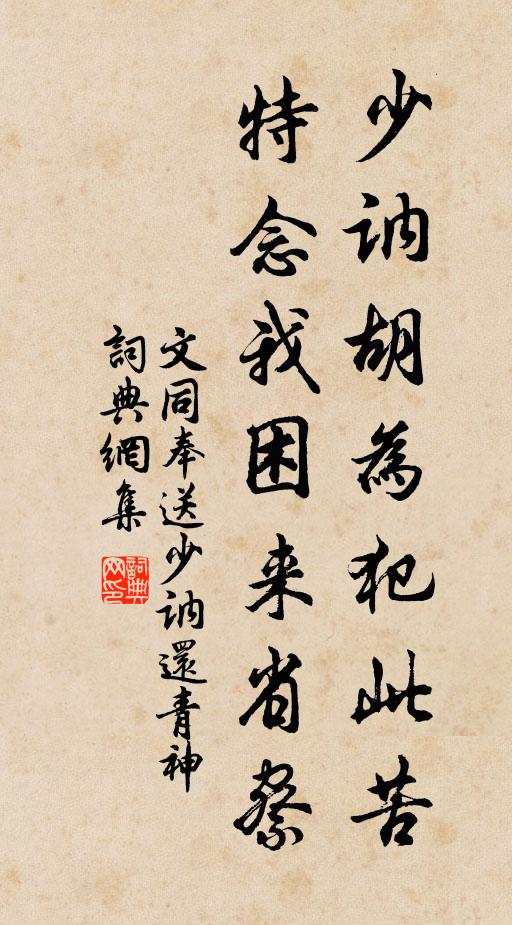 少訥胡為犯此苦
特念我困来省察
文同奉送少訥還青神
詞典網集
詞典网印